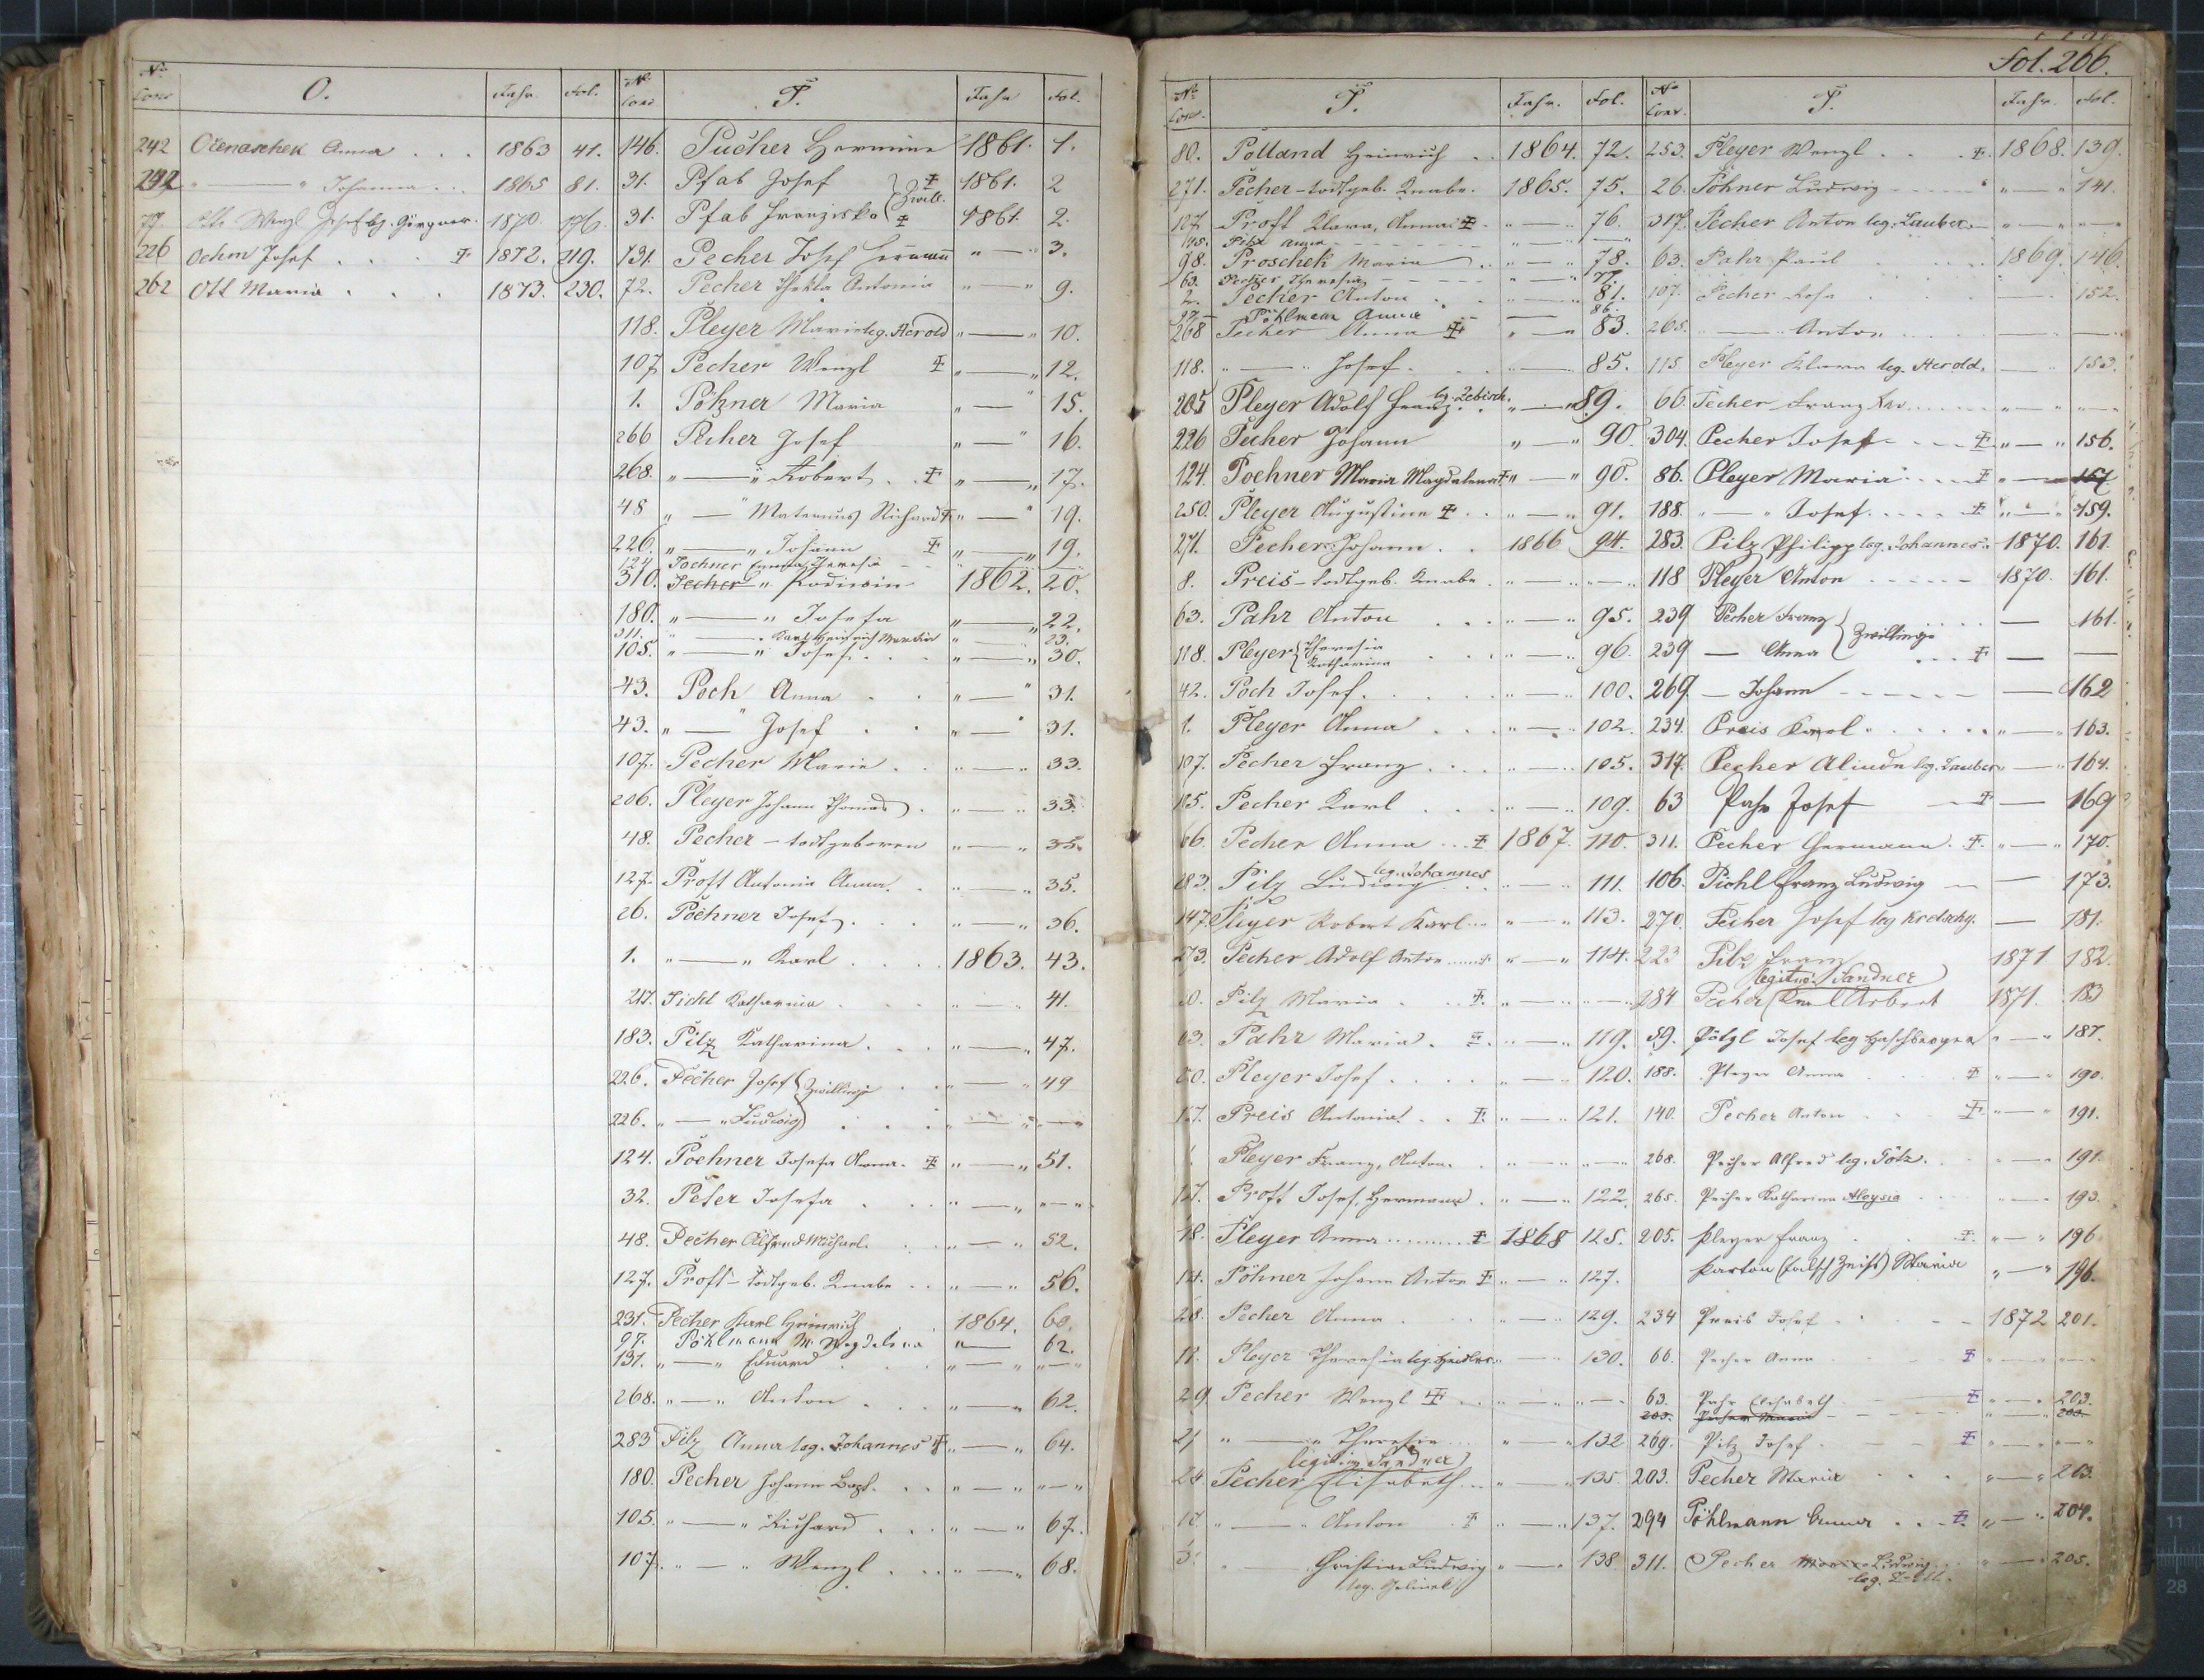 Fol. 266.
No Conv. O. Jahr. Fol.
242 Očenaschek Anna . . . 1863 41.
242 " — " Johanna . . . 1865 81.
77. Wenzl Josef 1870. 176.
226 Oehm Josef . . . 1872. 219.
262 Ott Maria . . . 1873. 230.
No Conv. P. Jahr Fol.
146. Pucher Hermine 1861. 1.
31. Pfab Josef Zwill. 1861. 2
31. Pfab Franziska 1861. 2.
131. Pecher Josef Hermann " — " 3.
72. Pecher Thekla Antonia " — " 9.
118. Pleyer Marie leg. Herold " — " 10.
107. Pecher Wenzl " — " 12.
1. Maria " — " 15.
266 Pecher Josef " — " 16.
268. " — " Robert . . " — " 17.
48 " — " Maternus Richard " — " 19.
226. " — " Johann " — " 19.
124 Pochner Emma Theresia
310. Pecher " 1862. 20.
180. " — " Josefa " — " 22.
311. " — " Karl Heinrich Martin " 23.
105. " — " Josef . . . " — " 30.
43. Poch Anna . . " — " 31.
43. " — " Josef . . " — " 31.
107. Pecher Marie . . " — " 33.
206. Pleyer Johann Thomas . " — " 33.
48. Pecher – todtgeboren " — " 35.
127. Proft Antonia Anna . " — " 35.
26. Pöchner Josef . . . " — " 36.
1. " — " Karl . . . . 1863. 43.
217. Pichl Katharina . . . " — " 41.
183. Pilz Katharina . . . " — " 47.
226. Pecher Josef Zwillinge . . " — " 49
226. " — " Ludwig . . . " — " " — "
124. Pochner Josefa Anna . " — " 51.
32. Peter Josefa . . . " — " " — "
48. Pecher Alfred Michael . . " — " 52.
127. Proft – todtgeb. Knabe . . " — " 56.
231. Pecher Karl Heinrich . 1864. 60.
97. Pöhlmann M. Magdalena " — 62.
131. " — " Eduard . . . " — " " — "
268. " — " Anton . . . " — " 62.
283 Pilz Anna leg. Johannes " — " 64.
180. Pecher Johann Bapt. . . " — " " — "
105. " — " Richard . . . " — " 67.
107. " — " Wenzl . . . " — " 68.
No Conv. P. Jahr. Fol.
80. Polland Heinrich . . 1864. 72.
271. Pecher – todtgeb. Knabe. 1865. 75.
127 Proft Klara, Anna " — " 76.
Pilz Anna
98. Proschek Maria . . " — " 78.
63. Pecher Theresia 77.
2. Pecher Anton . . " — " 81.
97 — Pöhlmann Anna — 86.
268 Pecher Anna " — " 83.
118. " — " Josef . . " — " 85.
205 Pleyer Adolf Franz . . leg. Zebisch. " — " 89.
226 Pecher Johann " — " 90
124. Pochner Maria Magdalena " — " 90.
250. Pleyer Augustine . . " — " 91.
271. Pecher Johann . . 1866 94.
8. Preis – todtgeb. Knabe . " — " " — "
63. Pahr Anton . . . " — " 95.
118. Pleyer Theresia Katharina . . " — " 96.
42. Poch Josef . . . " — " 100.
1. Pleyer Anna . . . " — " 102.
107. Pecher Franz . . . " — " 105.
Pecher Karl . . . " — " 109.
66. Pecher Anna . . . 1867. 110.
283. Pilz Ludwig leg. Johannes . . " — " 111.
147. Pleyer Robert Karl . . . " — " 113.
273. Pecher Adolf Anton . . . " — " 114.
Pilz Maria . . " — " " — "
63. Pahr Maria . . " — " 119.
Pleyer Josef . . . . " — " 120.
Preis Antonia . . " — " 121.
Pleyer Franz, Anton . . " — " " — "
Proft Josef, Hermann . " — " 122.
Pleyer Anna . . . . 1868 125.
Pöhner Johann Anton " — " 127.
Pecher Anna . . . . " — " 129.
Pleyer Theresia leg. " — " 130.
Pecher Wenzl . . . " — " " — "
" — " Theresia . . . " — " 132
legitim. Sandner
Pecher Elisabeth . . . " — " 135.
" — " Anton . " — " 137.
" — Christian Ludwig " — " 138.
leg.
No Conv. P. Jahr. Fol.
253. Pleyer Wenzl . . . 1868. 139.
26. Pöhner Ludwig . . . " — " 141.
317. Pecher Anton leg. Lauber . " — " " — "
63. Pahr Paul . . . 1869. 146.
107. Pecher Rosa . . . 152.
265. " — " Anton . . .
115 Pleyer Klara leg. Herold. — " 153.
66. Pecher Franz Xav. . . . " — " " — "
304. Pecher Josef . . . " — " 156.
86. Pleyer Maria . . . " — 157
188. " — " Josef . . . . " — " 159.
283. Pilz Philipp leg. Johannes . 1870. 161.
118 Pleyer Anton . . . . 1870. 161.
239 Pecher Franz Zwillinge . . . — 161.
239 — Anna . . . — —
269. — Johann . . . . — 162
234. Preis Karl . . . . " — " 163.
317. Pecher Alinde leg. Lauber " — " 164.
63 Pahr Josef — 169
311. Pecher Hermann . " — " 170.
106. Pichl Franz Ludwig — — 173.
270. Pecher Josef leg Kretschy. — 181.
223 Pilz Franz 1871 182.
legitim. Sandner
284 Pecher Karl Norbert 1871. 183
59. Pötzl Josef leg " — " 187.
188. Pleyer Anna . . . " — " 190.
140. Pecher Anton . . . " — " 191.
268. Pecher Alfred leg. Götz . . " — " 191.
265. Pecher Katharina Aloysia . . " — " 193.
205. Pleyer Franz . . . " — " 196
Parton (falsch Zeiß) Maria " — " 196.
234 Preis Josef . . . . 1872 201.
66. Pecher Anna . . . " — " " — "
63. Pahr Elisabeth . . . " — " 203.
203. Pecher Maria " — " 203.
269. Pilz Josef . . . " — " " — "
203. Pecher Maria . . . " — " 203.
294 Pöhlmann Anna . . . " — " 204.
311. Pecher Ludwig . . " — " 205.
leg.